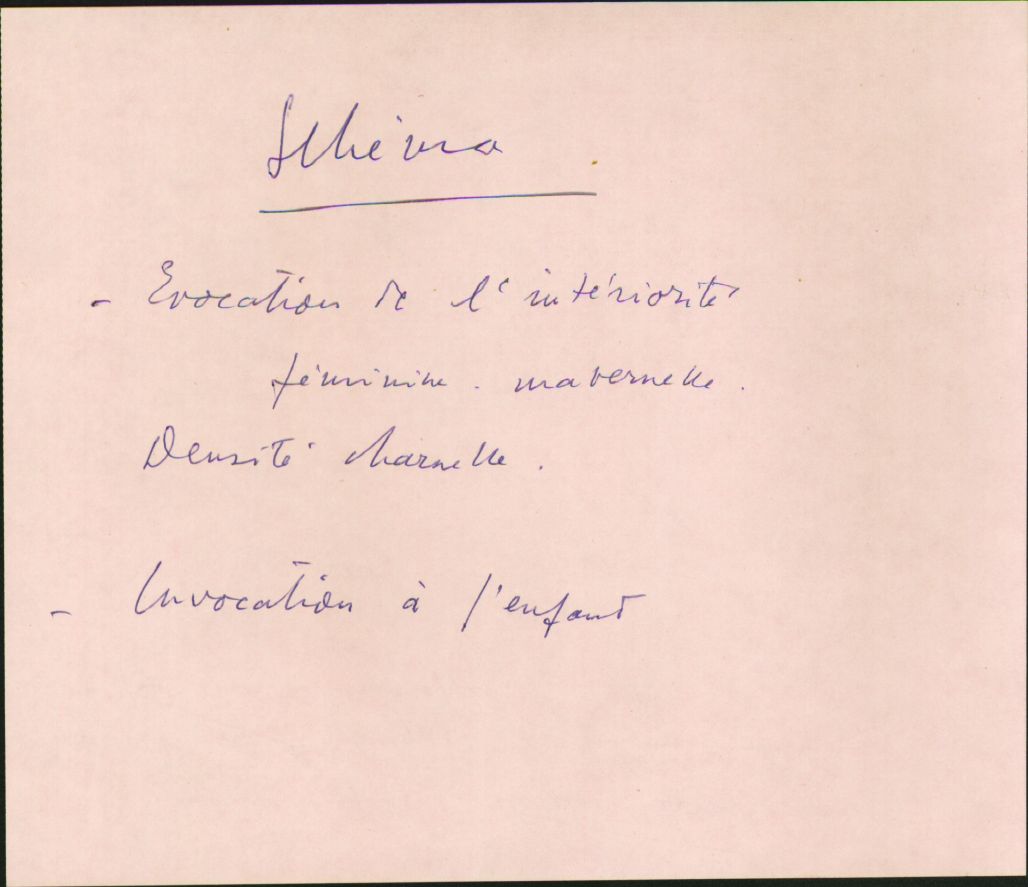 Schéma
- Evocation de l'intériorité
féminine . maternelle .
Densité charnelle .
- Invocation à l'enfant